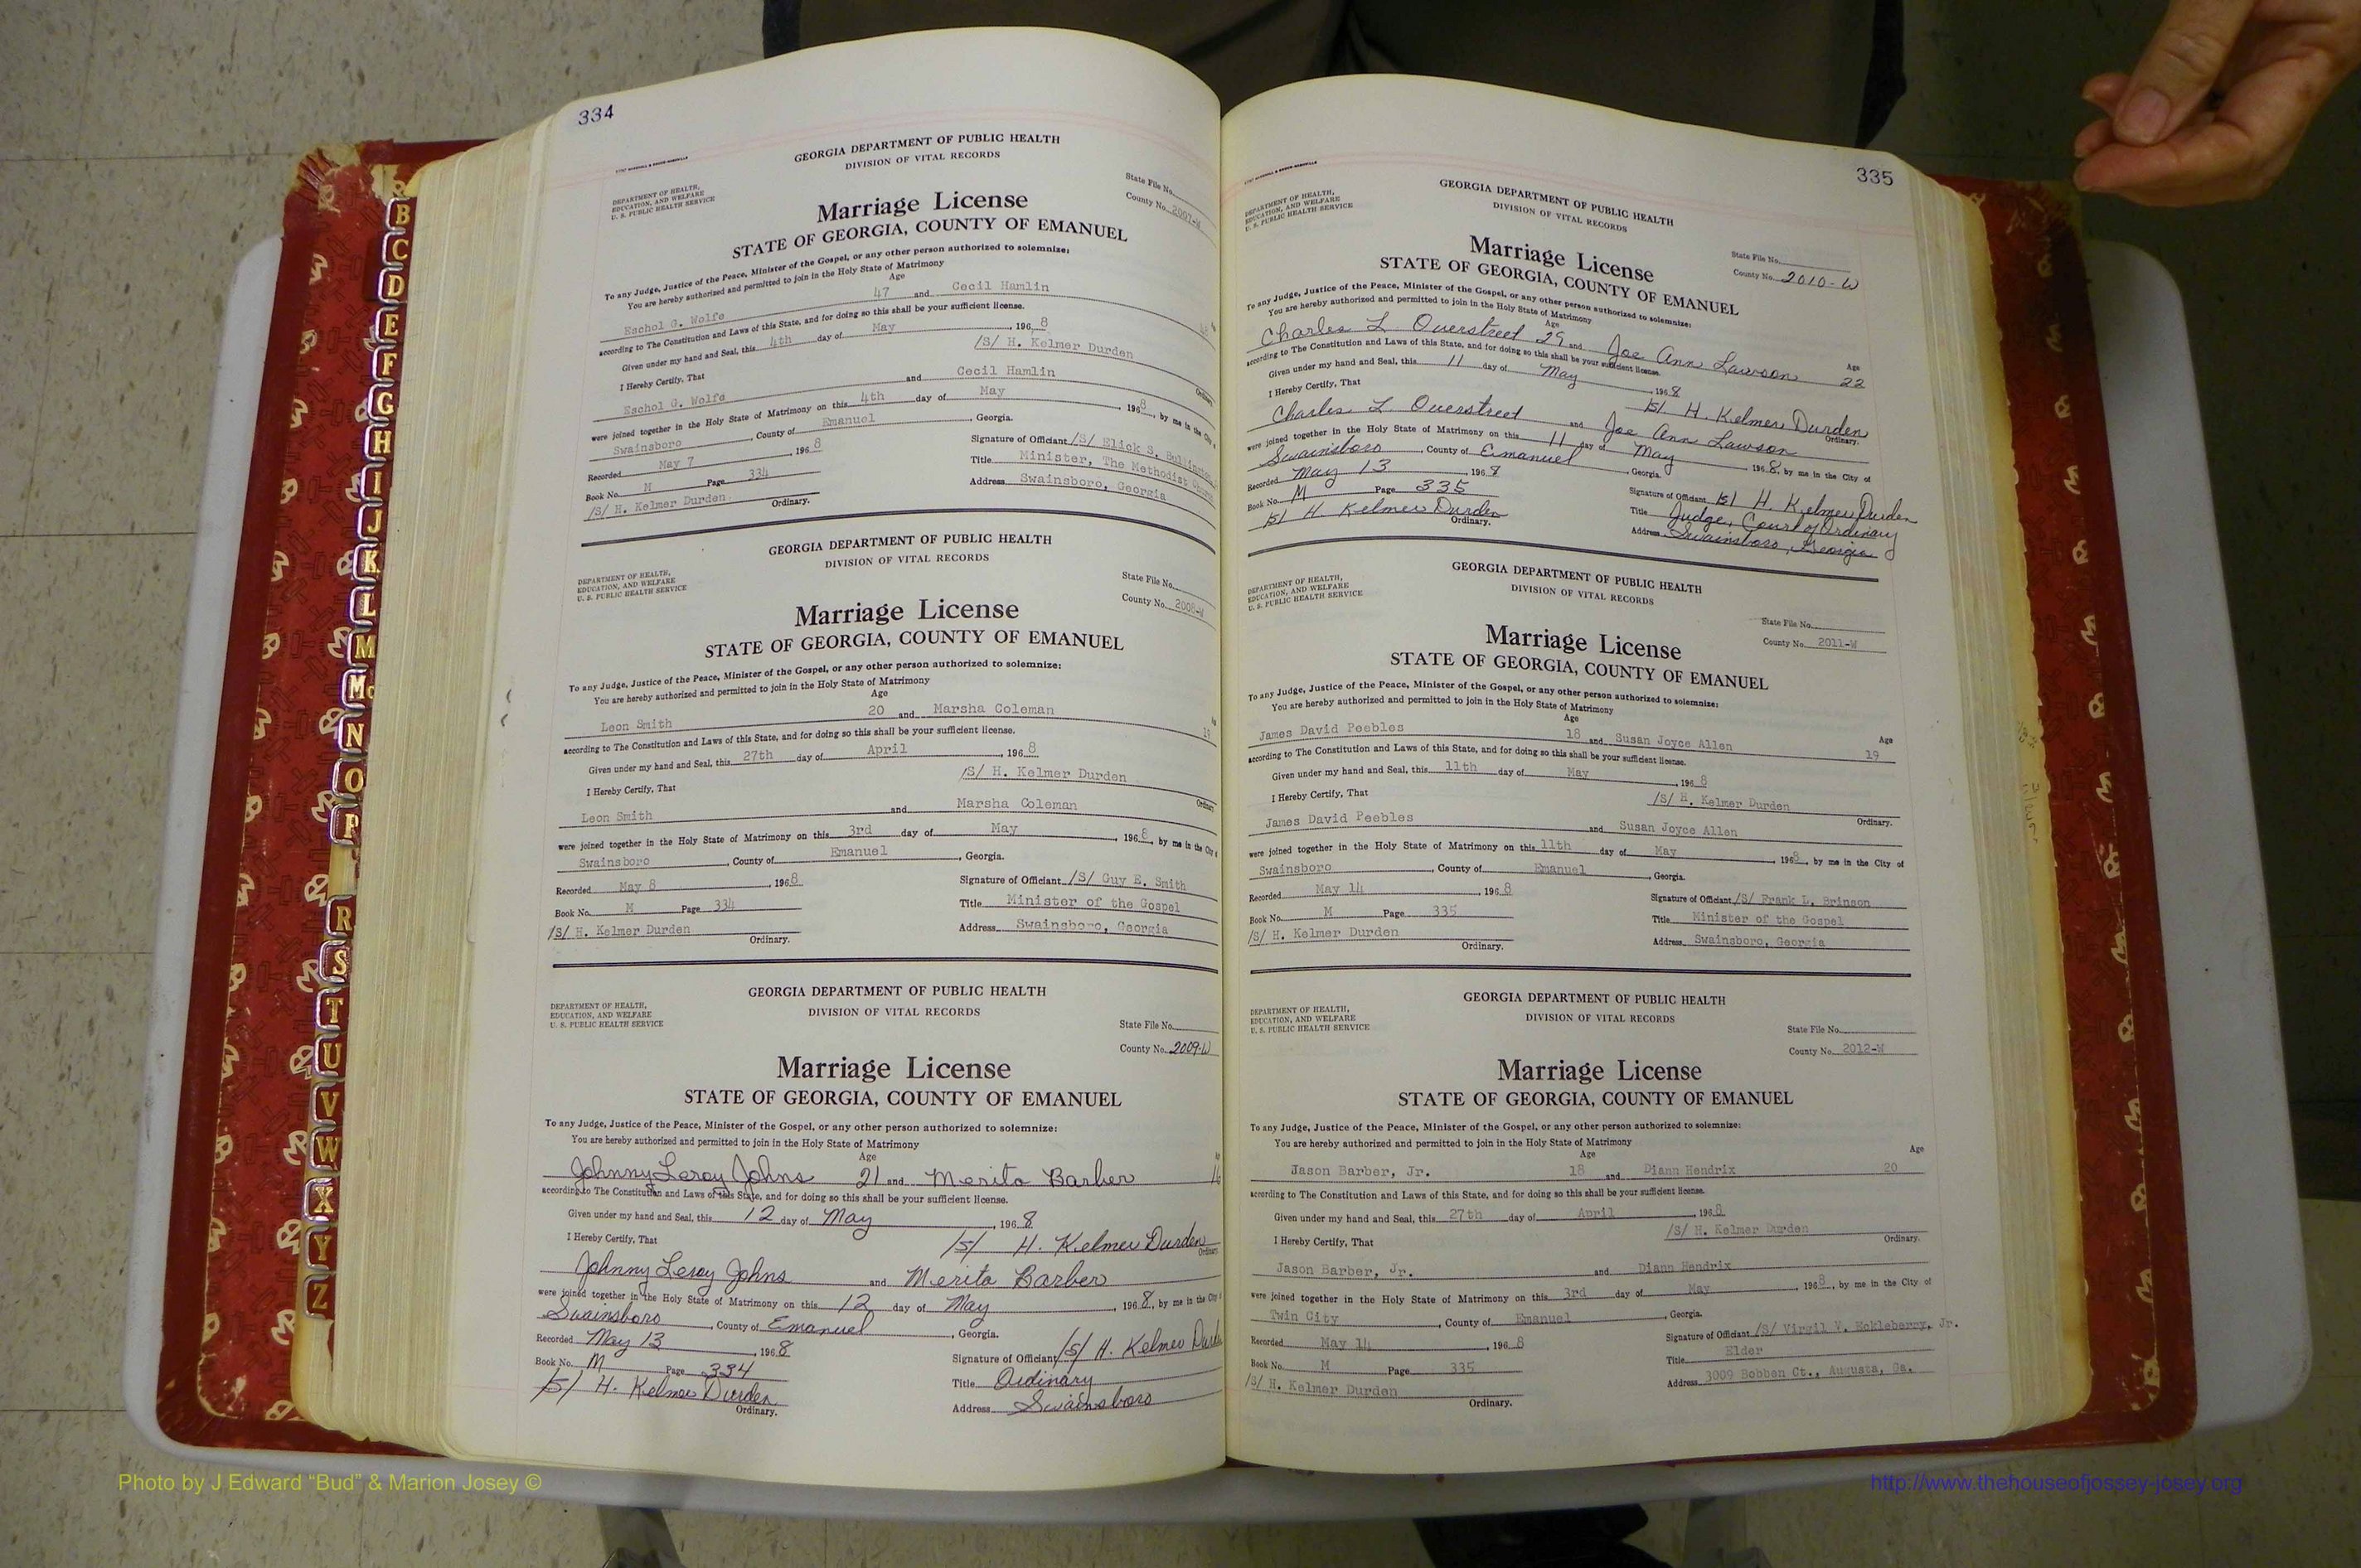 334
GEORGIA DEPARTMENT OF PUBLIC HEALTH
DIVISION OF VITAL RECORDS
DEPARTMENT OF HEALTH,
EDUCATION, AND WELFARE
U. S. PUBLIC HEALTH SERVICE
State File No.
County No. 2007-W
Marriage License
STATE OF GEORGIA, COUNTY OF EMANUEL
To any Judge, Justice of the Peace, Minister of the Gospel, or any other person authorized to solemnize:
You are hereby authorized and permitted to join in the Holy State of Matrimony
Age
Eschol G. Wolfe 47 and Cecil Hamlin
according to The Constitution and Laws of this State, and for doing so this shall be your sufficient license.
Given under my hand and Seal, this 4th day of May, 1968
/S/ H. Kelmer Durden
Ordinary
I Hereby Certify, That
Eschol G. Wolfe and Cecil Hamlin
were joined together in the Holy State of Matrimony on this 4th day of May 1968, by me in the City
Swainsboro, County of Emanuel, Georgia.
Recorded May 7, 1968
Signature of Officiant /S/ Elick S.
Book No. M Page 334
Title Minister, The Methodist Church
/S/ H. Kelmer Durden
Address Swainsboro, Georgia
Ordinary.
GEORGIA DEPARTMENT OF PUBLIC HEALTH
DIVISION OF VITAL RECORDS
DEPARTMENT OF HEALTH,
EDUCATION, AND WELFARE
U. S. PUBLIC HEALTH SERVICE
State File No.
County No. 2008-W
Marriage License
STATE OF GEORGIA, COUNTY OF EMANUEL
To any Judge, Justice of the Peace, Minister of the Gospel, or any other person authorized to solemnize:
You are hereby authorized and permitted to join in the Holy State of Matrimony
Age
Leon Smith 20 and Marsha Coleman
according to The Constitution and Laws of this State, and for doing so this shall be your sufficient license.
Given under my hand and Seal, this 27th day of April, 1968
/S/ H. Kelmer Durden
Ordinary
I Hereby Certify, That
Leon Smith and Marsha Coleman
were joined together in the Holy State of Matrimony on this 3rd day of May, 1968, by me in the City
Swainsboro, County of Emanuel, Georgia.
Recorded May 8, 1968
Signature of Officiant /S/ Guy E. Smith
Book No. M Page 334
Title Minister of the Gospel
/S/ H. Kelmer Durden
Address Swainsboro, Georgia
Ordinary.
GEORGIA DEPARTMENT OF PUBLIC HEALTH
DIVISION OF VITAL RECORDS
DEPARTMENT OF HEALTH,
EDUCATION, AND WELFARE
U. S. PUBLIC HEALTH SERVICE
State File No.
County No. 2009-W
Marriage License
STATE OF GEORGIA, COUNTY OF EMANUEL
To any Judge, Justice of the Peace, Minister of the Gospel, or any other person authorized to solemnize:
You are hereby authorized and permitted to join in the Holy State of Matrimony
Age
Johnny Leroy Johns 21 and Merita Barber 16
according to The Constitution and Laws of this State, and for doing so this shall be your sufficient license.
Given under my hand and Seal, this 12 day of May, 1968
/S/ H. Kelmer Durden
Ordinary.
I Hereby Certify, That
Johnny Leroy Johns and Merita Barber
were joined together in the Holy State of Matrimony on this 12 day of May, 1968, by me in the City
Swainsboro, County of Emanuel, Georgia.
Recorded May 13, 1968
Signature of Officiant /S/ H. Kelmer
Book No. M Page 334
Title Ordinary
/S/ H. Kelmer Durden
Address Swainsboro
Ordinary.
335
GEORGIA DEPARTMENT OF PUBLIC HEALTH
DIVISION OF VITAL RECORDS
DEPARTMENT OF HEALTH,
EDUCATION, AND WELFARE
U. S. PUBLIC HEALTH SERVICE
State File No.
County No. 2010-W
Marriage License
STATE OF GEORGIA, COUNTY OF EMANUEL
To any Judge, Justice of the Peace, Minister of the Gospel, or any other person authorized to solemnize:
You are hereby authorized and permitted to join in the Holy State of Matrimony
Age Age
Charles L. Overstreet 29 and Joe Ann Lawson 22
according to The Constitution and Laws of this State, and for doing so this shall be your sufficient license.
Given under my hand and Seal, this 11 day of May, 1968
/S/ H. Kelmer Durden
Ordinary.
I Hereby Certify, That
Charles L. Overstreet and Joe Ann Lawson
were joined together in the Holy State of Matrimony on this 11 day of May, 1968, by me in the City of
Swainsboro, County of Emanuel, Georgia.
Recorded May 13, 1968
Signature of Officiant /S/ H. Kelmer Durden
Book No. M Page 335
Title Judge, Court of Ordinary
/S/ H. Kelmer Durden
Address Swainsboro, Georgia
Ordinary.
GEORGIA DEPARTMENT OF PUBLIC HEALTH
DIVISION OF VITAL RECORDS
DEPARTMENT OF HEALTH,
EDUCATION, AND WELFARE
U. S. PUBLIC HEALTH SERVICE
State File No.
County No. 2011-W
Marriage License
STATE OF GEORGIA, COUNTY OF EMANUEL
To any Judge, Justice of the Peace, Minister of the Gospel, or any other person authorized to solemnize:
You are hereby authorized and permitted to join in the Holy State of Matrimony
Age Age
James David Peebles 18 and Susan Joyce Allen 19
according to The Constitution and Laws of this State, and for doing so this shall be your sufficient license.
Given under my hand and Seal, this 11th day of May, 1968
/S/ H. Kelmer Durden
Ordinary.
I Hereby Certify, That
James David Peebles and Susan Joyce Allen
were joined together in the Holy State of Matrimony on this 11th day of May, 1968, by me in the City of
Swainsboro, County of Emanuel, Georgia.
Recorded May 14, 1968
Signature of Officiant /S/ Frank L. Brinson
Book No. M Page 335
Title Minister of the Gospel
/S/ H. Kelmer Durden
Address Swainsboro, Georgia
Ordinary.
GEORGIA DEPARTMENT OF PUBLIC HEALTH
DIVISION OF VITAL RECORDS
DEPARTMENT OF HEALTH,
EDUCATION, AND WELFARE
U. S. PUBLIC HEALTH SERVICE
State File No.
County No. 2012-W
Marriage License
STATE OF GEORGIA, COUNTY OF EMANUEL
To any Judge, Justice of the Peace, Minister of the Gospel, or any other person authorized to solemnize:
You are hereby authorized and permitted to join in the Holy State of Matrimony
Age Age
Jason Barber, Jr. 18 and Diann Hendrix 20
according to The Constitution and Laws of this State, and for doing so this shall be your sufficient license.
Given under my hand and Seal, this 27th day of April, 1968
/S/ H. Kelmer Durden
Ordinary.
I Hereby Certify, That
Jason Barber, Jr. and Diann Hendrix
were joined together in the Holy State of Matrimony on this 3rd day of May, 1968, by me in the City of
Twin City, County of Emanuel, Georgia.
Recorded May 14, 1968
Signature of Officiant /S/ Virgil V. Eckleberry, Jr.
Book No. M Page 335
Title Elder
/S/ H. Kelmer Durden
Address 3009 Bobben Ct., Augusta, Ga.
Ordinary.
B
C
D
E
F
G
H
I
J
K
L
M
Mc
N
O
P
R
S
T
U
V
W
X
Y
Z
Photo by J Edward “Bud” & Marion Josey ©
http://www.thehouseofjossey-josey.org